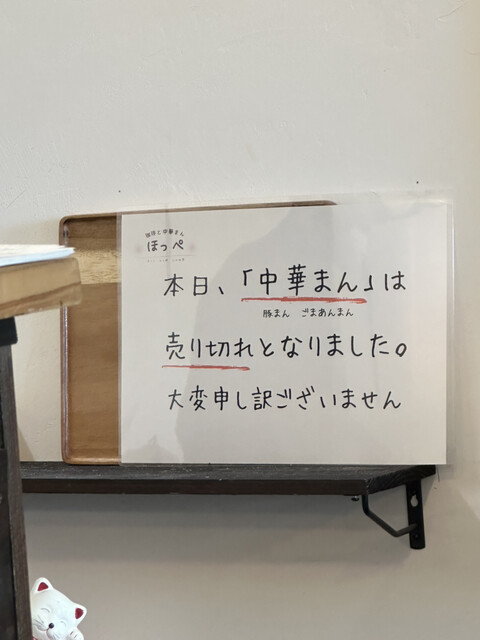 ほっぺ
本日、「中華まん」は
豚まん ごまあんまん
売り切れとなりました。
大変申し訳ございません